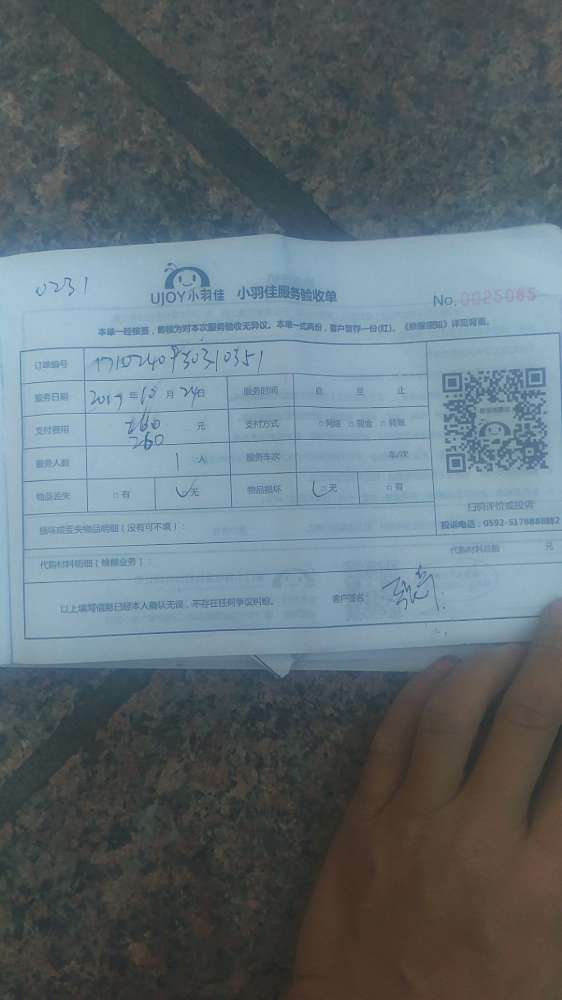 0231
UJOY小羽佳 小羽佳服务验收单
No.
本单一经接签，即视为对本次服务验收无异议。本单一式两份，客户暂存一份(红)。《维保须知》详见背面。
订单编号
服务日期 2019 年 10 月 24 日 服务时间 自 至 止
支付费用 260 元 支付方式 □网络 □现金 □转账
260
服务人数 1 人 服务车次 年/次
物品丢失 □有 □无 物品损坏 □无 □有
损坏或丢失物品明细（没有可不填）：
扫码评价或投诉
投诉电话：0592-5178888转2
代购材料明细（维修业务）： 代购材料总额 元
以上填写信息已经本人确认无误，不存在任何争议纠纷。 客户签名